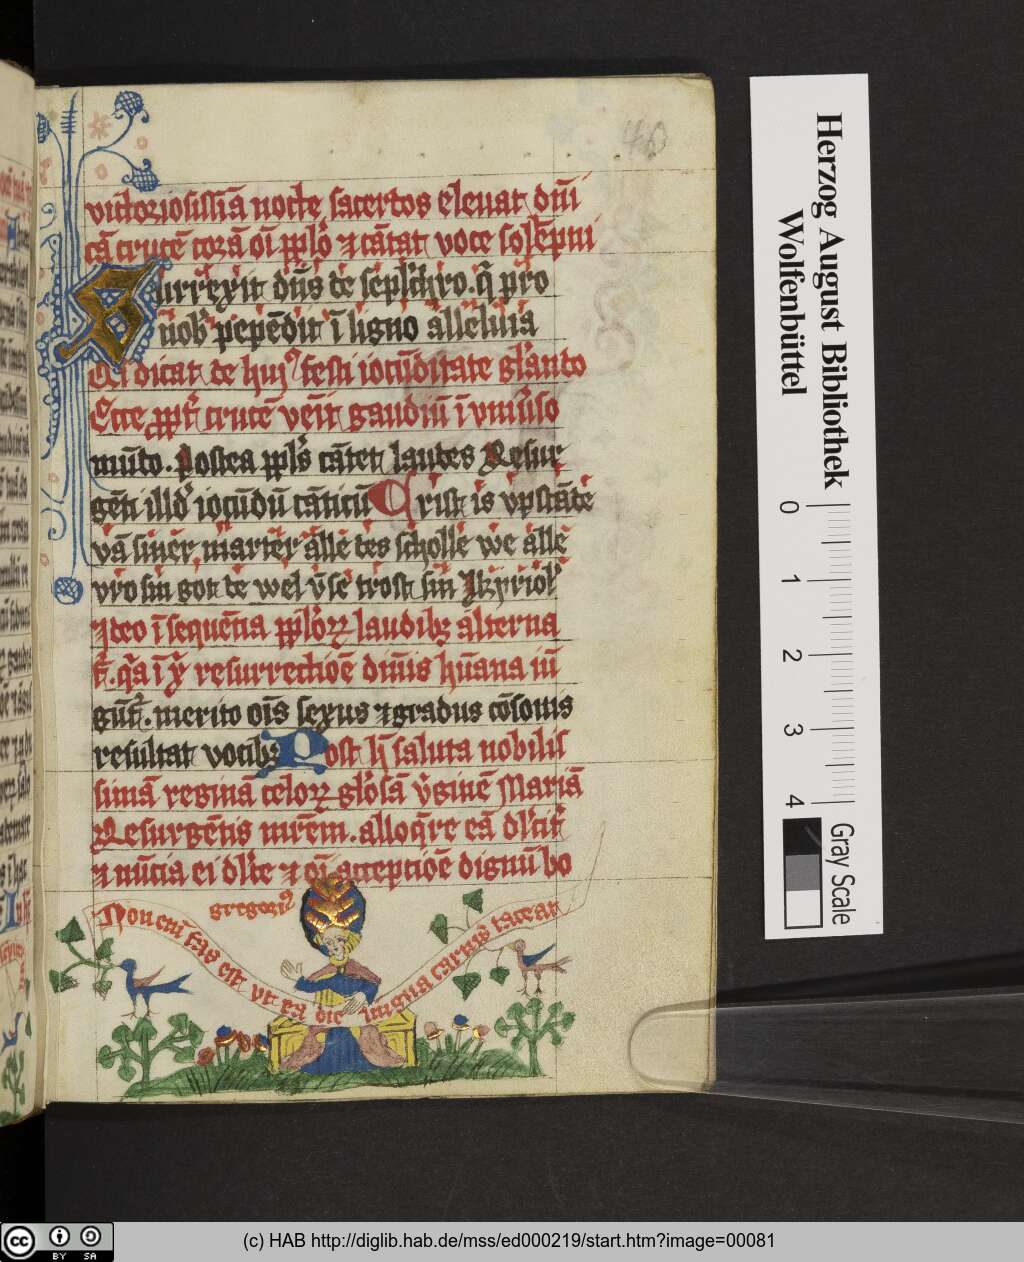 40
victoriosissiā nocte sacertos eleuat dn̄i
cā crucē corā oī ppl̓o ⁊ cātat voce solēpni
Surrexit dn̄s de sepl̓chro. q̄ pro
nob̓ pepēdit ī ligno alleluia
dicat de huiꝰ festi iocūditate gl̓ando
Ecce ppt̓ crucē venīt gaudiū ī vniu̓so
mūdo. Postea ppl̓s cātet laudes Resur
gēti illd̓ iocūdū cāticū Crist is vpstādē
vā sīner marter alle des scholle we alle
vro sin got de wel v̄se trost sin Kyriol̓
⁊deo ī sequētia ppl̓oꝝ laudibꝫ alterna
t̓. q̄a ī xp̄ resurrectiōe diuīs hūana iū
gūt̓. merito oīs sexus ⁊ gradus cōsonis
resultat vocibꝫ Post h̄ saluta nobilis
simā reginā celoꝝ gl̓osā v̓ginē Mariā
Resurgētis mr̄em. alloq̄re eā dl̓cit̓
⁊ nūcia ei dl̓ce ⁊ oī acceptiōe dignū bo
gregoriꝰ
Non enī fas est vt ea die lingua carnis taceat
Herzog August Bibliothek
Wolfenbüttel
0 1 2 3 4
Gray Scale
cc BY SA
(c) HAB http://diglib.hab.de/mss/ed000219/start.htm?image=00081